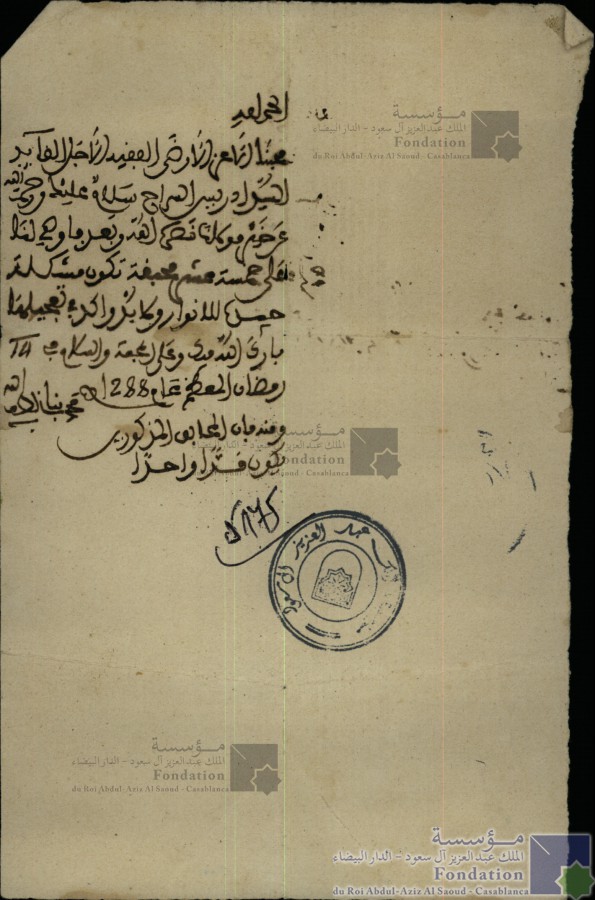 الحمد لله
محبنا الأعز الأرضى الفقيه الأجل القايد
السيد ادريس السراج سلام عليك ورحمت الله
عن خير مولانا نصره الله وبعد فوجه لنا
على خمسة عشر محبقة تكون مشكلة
حسن الانوار ولا بد واكد في تعجيلها
بارك الله فيك وعلى المحبة والسلام في 14
رمضان المعظم عام 1288
وقدر المحابق المذكورين
يكون قدرا واحدا
175
عبد العزيز آل سعود
مؤسسة
الملك عبدالعزيز آل سعود - الدار البيضاء
Fondation
du Roi Abdul-Aziz Al Saoud - Casablanca
مؤسسة
الملك عبدالعزيز آل سعود - الدار البيضاء
Fondation
du Roi Abdul-Aziz Al Saoud - Casablanca
مؤسسة
الملك عبدالعزيز آل سعود - الدار البيضاء
Fondation
du Roi Abdul-Aziz Al Saoud - Casablanca
مؤسسة
الملك عبدالعزيز آل سعود - الدار البيضاء
Fondation
du Roi Abdul-Aziz Al Saoud - Casablanca